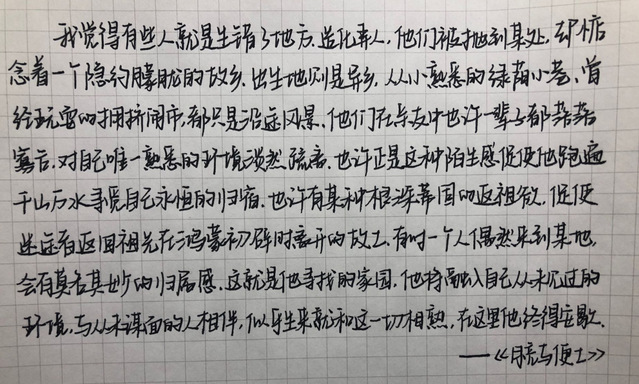 我觉得有些人就是生错了地方，造化弄人，他们被抛到某处，却惦
念着一个隐约朦胧的故乡，出生地则是异乡，从小熟悉的绿荫小巷，曾
经玩耍的拥挤闹市，都只是沿途风景。他们在亲友中也许一辈子都茕茕
寡言，对自己唯一熟悉的环境淡然疏离，也许正是这种陌生感促使他跑遍
千山万水寻觅自己永恒的归宿，也许有某种根深蒂固的返祖欲，促使
迷途者返回祖先在鸿蒙初辟时离开的故土。有时一个人偶然来到某地，
会有莫名其妙的归属感，这就是他寻找的家园，他将融入自己从未见过的
环境，与从未谋面的人相伴，似乎生来就和这一切相熟，在这里他终得安歇。
——《月亮与便士》